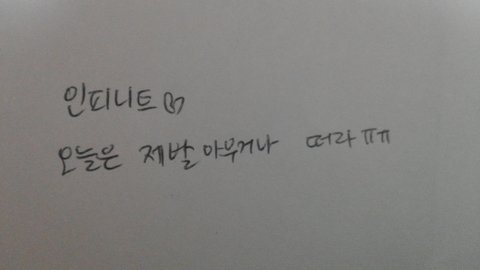 인피니트♡
오늘은 제발 아무거나 떠라 ㅠㅠ